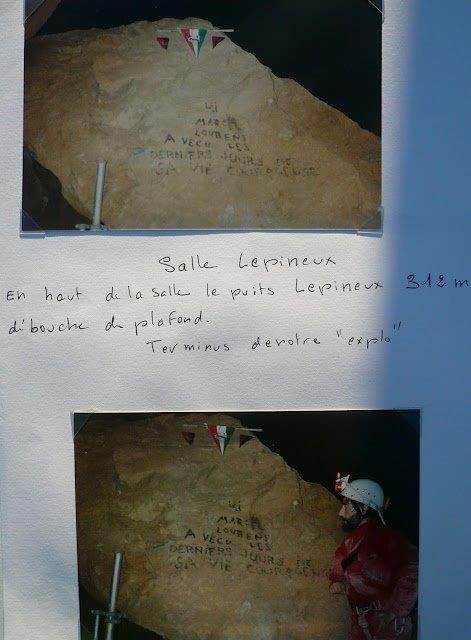 ICI
MARCEL
LOUBENS
A VECU LES
DERNIERS JOURS DE
SA VIE COURAGEUSE
Salle Lepineux
En haut de la salle le puits Lepineux 312 m
débouche du plafond.
Terminus de notre "explo"
ICI
MARCEL
LOUBENS
A VECU LES
DERNIERS JOURS DE
SA VIE COURAGEUSE